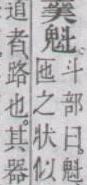 羹魁。
斗部曰。魁
匜之狀似
道者路也。其器